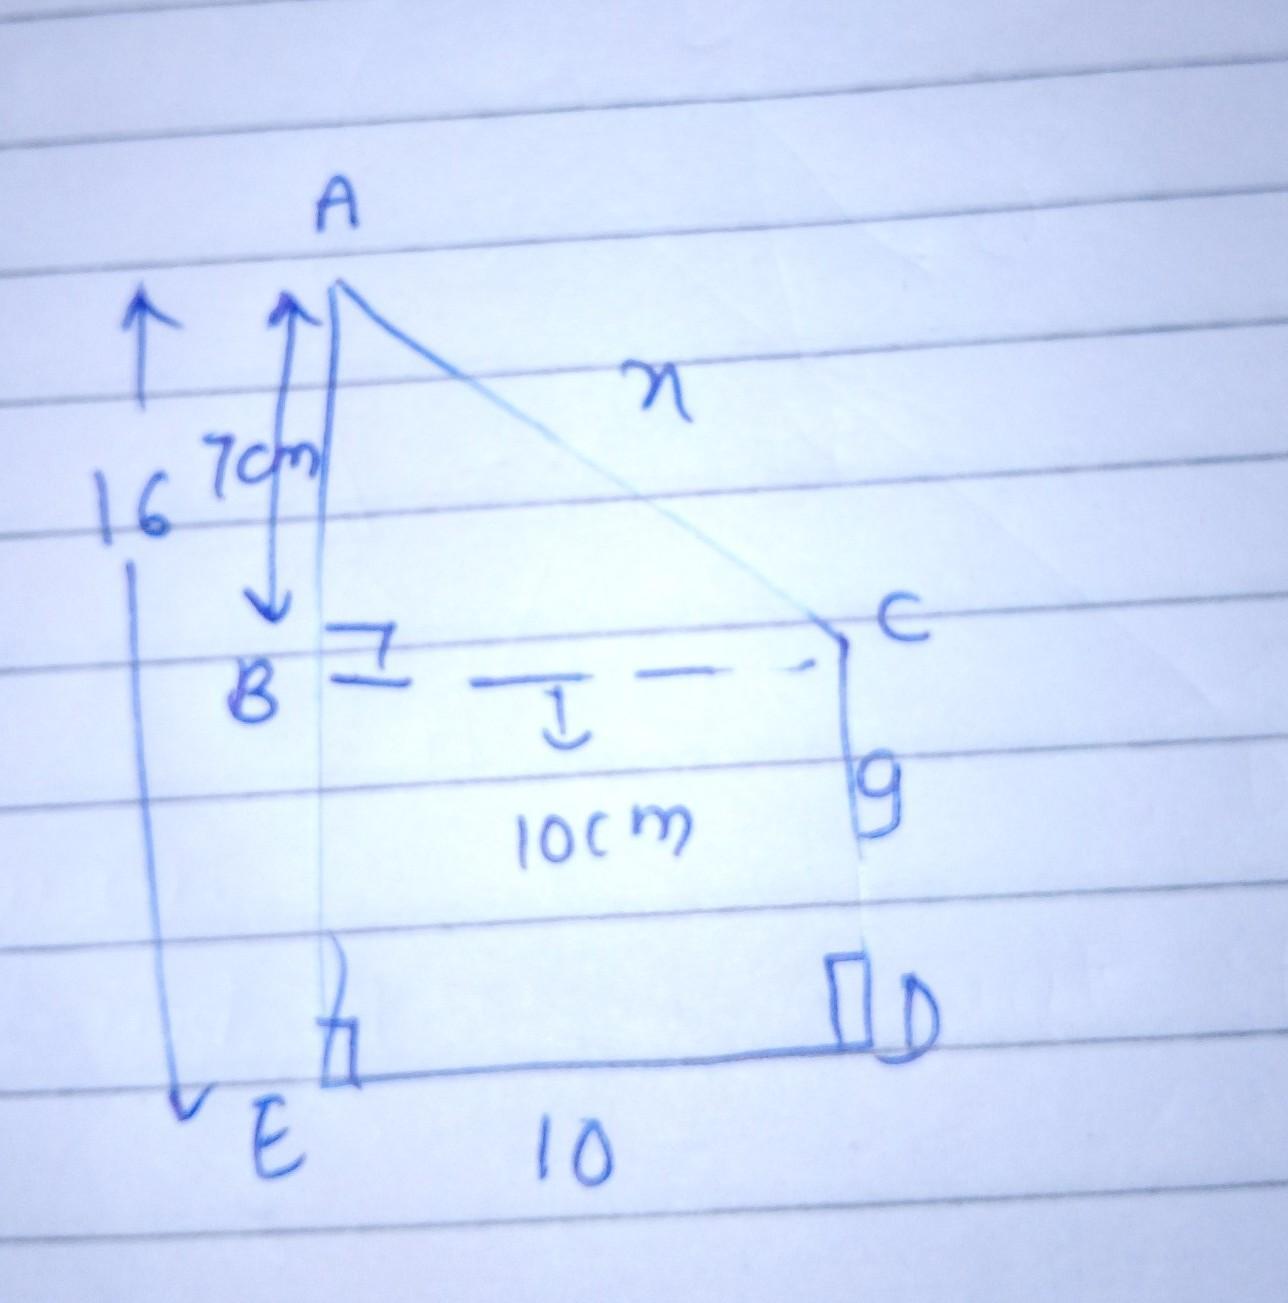 A
n
16 7cm
C
B
9
10cm
D
E
10